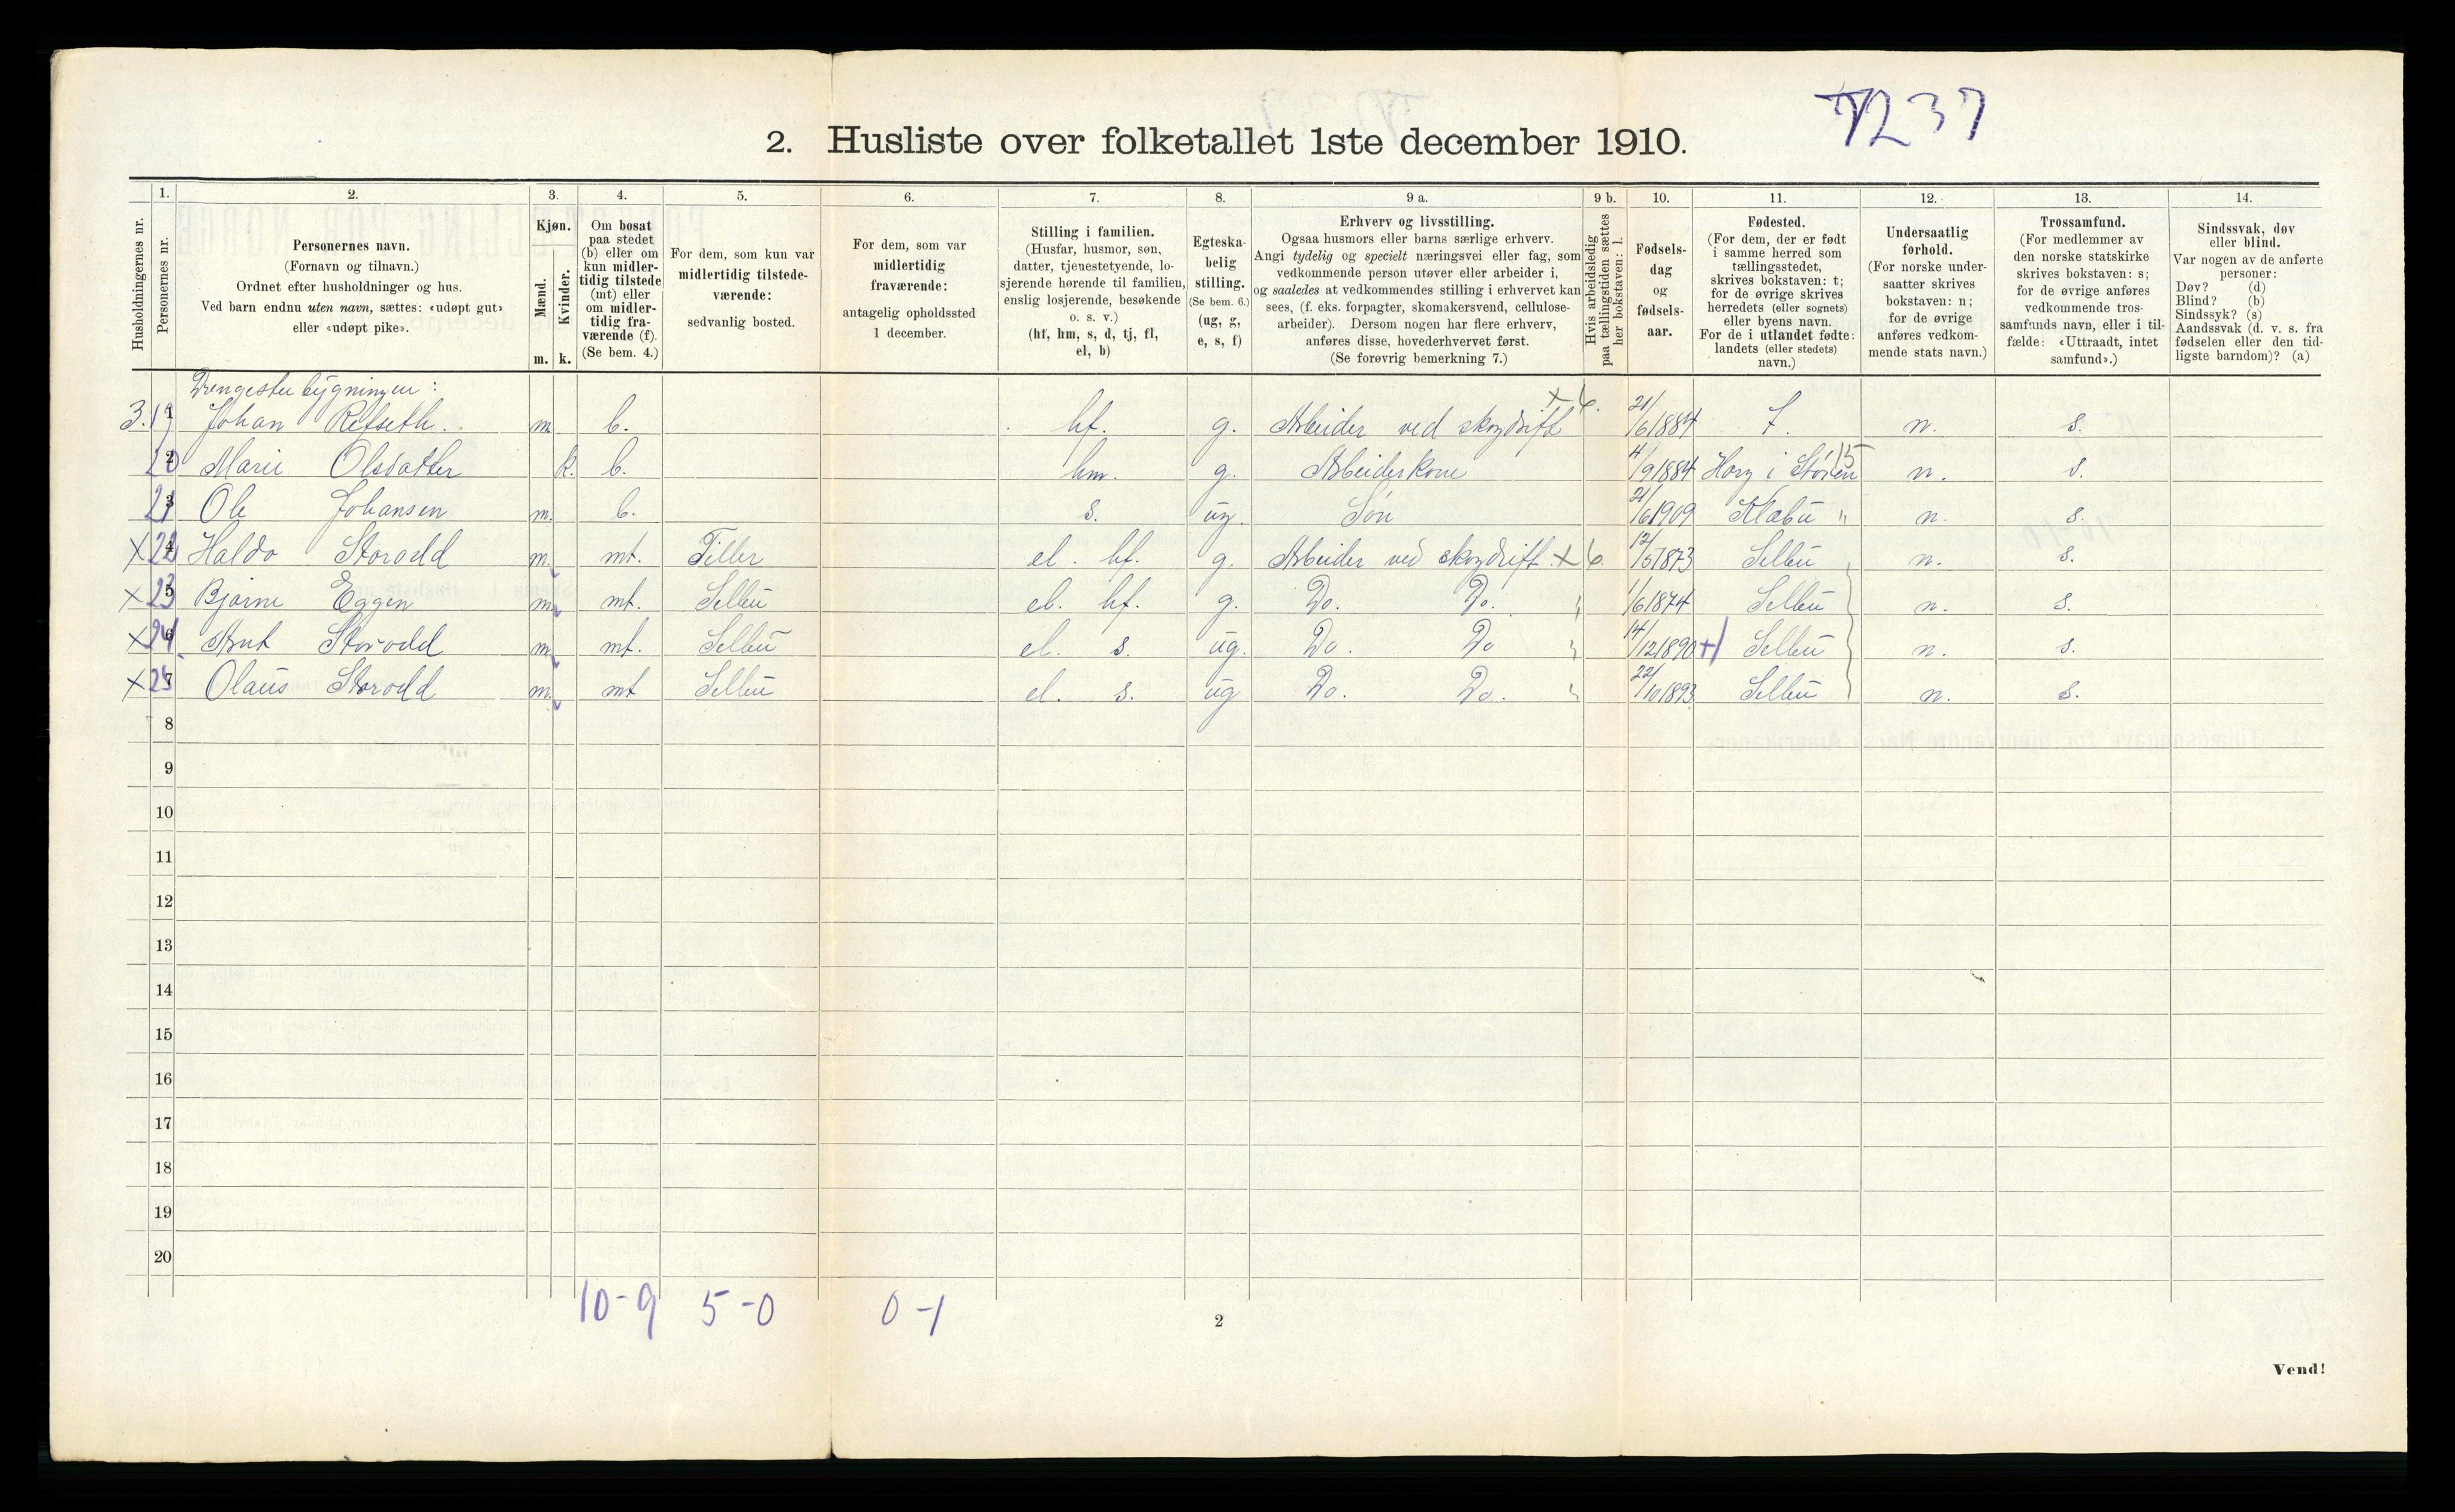 7237
2. Husliste over folketallet 1ste december 1910.
1. 2. 3. 4. 5. 6. 7. 8. 9 a. 9 b. 10. 11. 12. 13. 14.
Husholdningernes nr.
Personernes nr.
Personernes navn.
(Fornavn og tilnavn.)
Ordnet efter husholdninger og hus.
Ved barn endnu uten navn, sættes: «udøpt gut»
eller «udøpt pike».
Kjøn.
Mænd.
Kvinder.
m. k.
Om bosat
paa stedet
(b) eller om
kun midler-
tidig tilstede
(mt) eller
om midler-
tidig fra-
værende (f).
(Se bem. 4.)
For dem, som kun var
midlertidig tilstede-
værende:
sedvanlig bosted.
For dem, som var
midlertidig
fraværende:
antagelig opholdssted
1 december.
Stilling i familien.
(Husfar, husmor, søn,
datter, tjenestetyende, lo-
sjerende hørende til familien,
enslig losjerende, besøkende
o. s. v.)
(hf, hm, s, d, tj, fl,
el, b)
Egteska-
belig
stilling.
(Se bem. 6.)
(ug, g,
e, s, f)
Erhverv og livsstilling.
Ogsaa husmors eller barns særlige erhverv.
Angi tydelig og specielt næringsvei eller fag, som
vedkommende person utøver eller arbeider i,
og saaledes at vedkommendes stilling i erhvervet kan
sees, (f. eks. forpagter, skomakersvend, cellulose-
arbeider). Dersom nogen har flere erhverv,
anføres disse, hovederhvervet først.
(Se forøvrig bemerkning 7.)
Hvis arbeidsledig
paa tællingstiden sættes
her bokstaven: l.
Fødsels-
dag
og
fødsels-
aar.
Fødested.
(For dem, der er født
i samme herred som
tællingsstedet,
skrives bokstaven: t;
for de øvrige skrives
herredets (eller sognets)
eller byens navn.
For de i utlandet fødte:
landets (eller stedets)
navn.)
Undersaatlig
forhold.
(For norske under-
saatter skrives
bokstaven: n;
for de øvrige
anføres vedkom-
mende stats navn.)
Trossamfund.
(For medlemmer av
den norske statskirke
skrives bokstaven: s;
for de øvrige anføres
vedkommende tros-
samfunds navn, eller i til-
fælde: «Uttraadt, intet
samfund».)
Sindssvak, døv
eller blind.
Var nogen av de anførte
personer:
Døv? (d)
Blind? (b)
Sindssyk? (s)
Aandssvak (d. v. s. fra
fødselen eller den tid-
ligste barndom)? (a)
Drengestu bygningen:
3. 19 1 Johan Refseth. m. b. hf. g. Arbeider ved skogdrift x 6. 21/6 1884 t. n. s.
20 2 Marie Olsdatter k. b. hm. g. Arbeiderkone 4/9 1884 Horg i Støren 15 n. s.
21 3 Ole Johansen m. b. s. ug. Søn 21/6 1909 Klæbu " n. s.
x 22 4 Haldo Storodd m. mt. Tiller el. hf. g. Arbeider ved skogdrift. x 6 12/5 1873 Selbu n. s.
x 23 5 Bjarne Eggen m. mt. Selbu el. hf. g. Do. Do. 1/6 1874 Selbu n. s.
x 24 6 Arnt Storodd m. mt. Selbu el. s. ug. Do. Do 14/12 1890 +1 Selbu n. s.
x 25 7 Olaus Storodd m. mt Selbu el. s. ug Do. Do. 22/10 1893 Selbu n. s.
8
9
10
11
12
13
14
15
16
17
18
19
20
10-9 5-0 0-1
2
Vend!